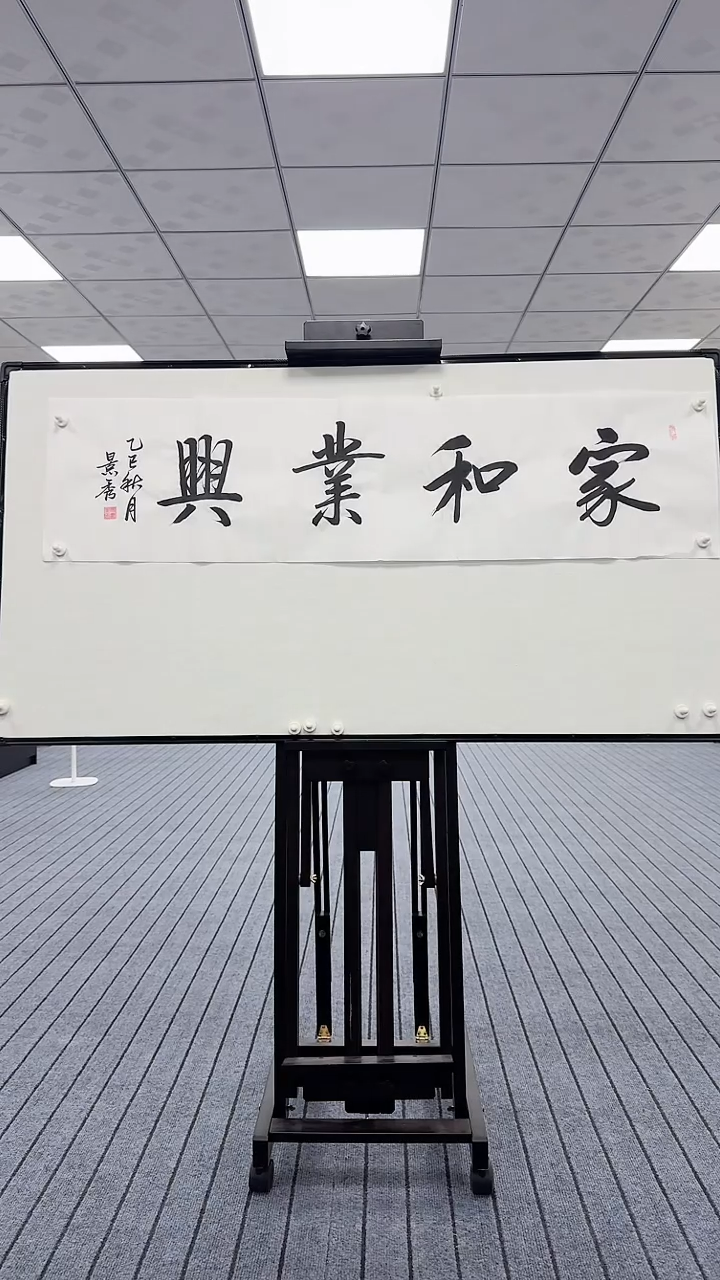 家和業興
乙巳秋月
景秀